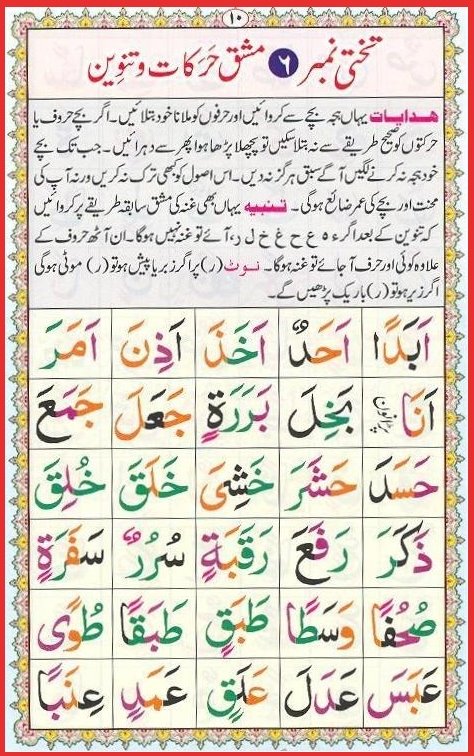 ۱۰
تختی نمبر ۶ مشق حرکات و تنوین
ھدایات یہاں ہجہ بچے سے کروائیں اور حرفوں کو ملانا خود بتلائیں۔ اگر بچے حروف یا
حرکتوں کو صحیح طریقے سے نہ بتلا سکیں تو پچھلا پڑھا ہوا پھر سے دہرائیں۔ جب تک بچے
خود ہجہ نہ کرنے لگیں آگے سبق ہرگز نہ دیں۔ اس اصول کو کبھی ترک نہ کریں ورنہ آپ کی
محنت اور بچے کی عمر ضائع ہوگی۔ تنبیہ یہاں بھی غنہ کی مشق سابقہ طریقے پر کروائیں
کہ تنوین کے بعد اگر ء ہ ع ح غ خ ل ر، آئے تو غنہ نہیں ہوگا۔ ان آٹھ حروف کے
علاوہ کوئی اور حرف آجائے تو غنہ ہوگا۔ نوٹ (ر) پر اگر زبر یا پیش ہو تو (ر) موٹی ہوگی
اگر زیر ہو تو (ر) باریک پڑھیں گے۔
اَبَدًا اَحَدٌ اَخَذَ اَذِنَ اَمَرَ
اَنَا بَخِلَ بَرَرَةٍ جَعَلَ جَمَعَ
حَسَدَ حَشَرَ خَشِیَ خَلَقَ خُلِقَ
ذَكَرَ رَفَعَ رَقَبَةٍ سُرُرٌ سَفَرَةٍ
صُحُفًا وَسَطًا طَبَقٍ طَبَقًا طُوًى
عَبَسَ عَدَلَ عَلَقٍ عَمَدٍ عِنَبًا